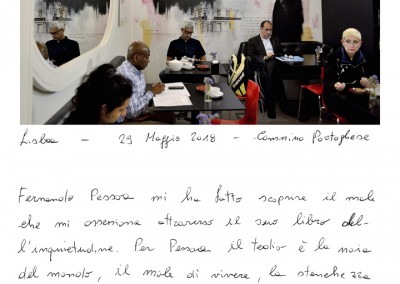 Lisboa - 29 Maggio 2018 - Cammino Portoghese
Fernando Pessoa mi ha fatto scoprire il male
che mi ossessiona attraverso il suo libro del-
l'inquietudine. Per Pessoa il tedio è la noia
del mondo, il male di vivere, la stanchezza